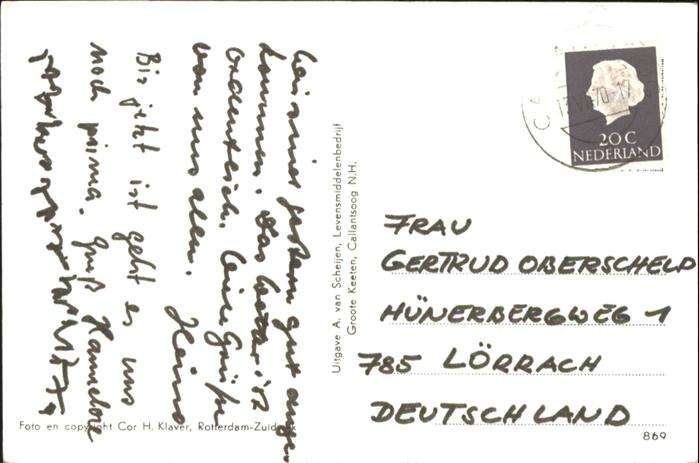 Wir sind gestern gut ange-
kommen. Das Wetter ist
ordentlich. Liebe Grüße
von uns allen. Heino
Bis jetzt ist geht es uns
noch prima. Gruß Hannelore
Uitgave A. van Scheijen, Levensmiddelenbedrijf
Groote Keeten, Callantsoog N.H.
20 C
NEDERLAND
FRAU
GERTRUD OBERSCHELD
HÜNERBERGWEG 1
785 LÖRRACH
DEUTSCHLAND
Foto en copyright Cor H. Klaver, Rotterdam-Zuidwijk
869